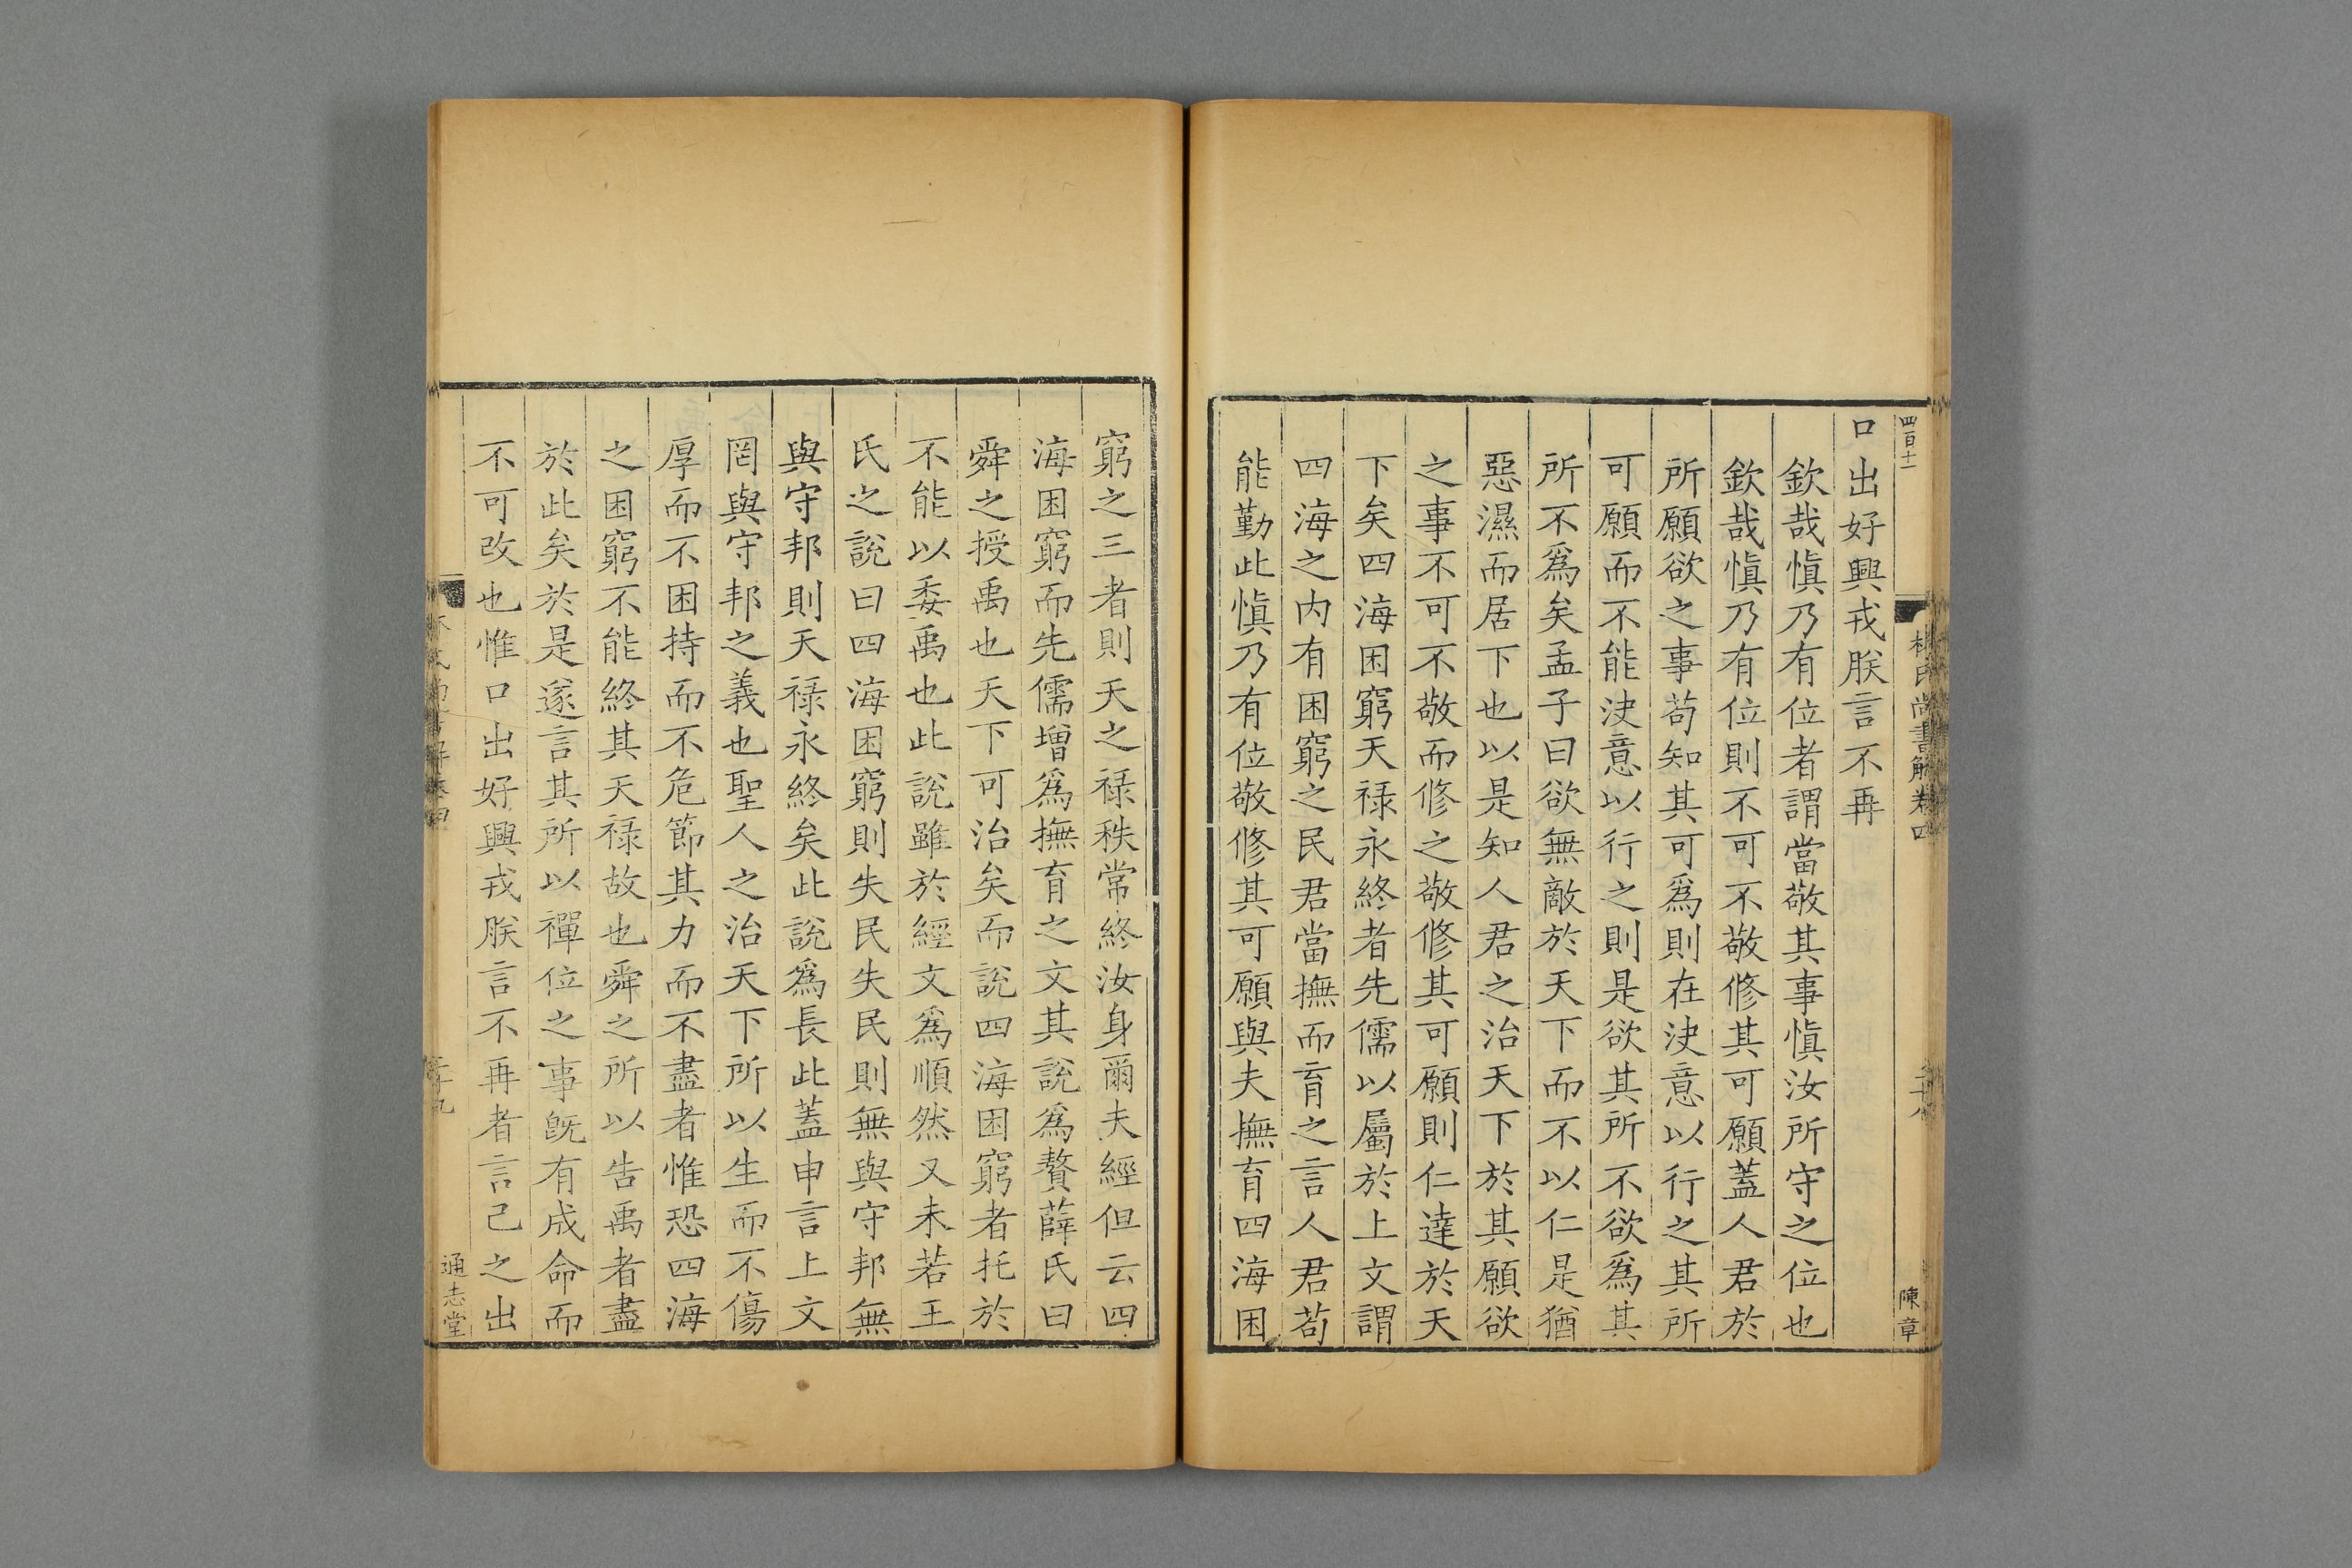 四百十一
林氏尚書解卷四
陳章
口出好興戎朕言不再
欽哉愼乃有位者謂當敬其事愼汝所守之位也
欽哉愼乃有位則不可不敬修其可願蓋人君於
所願欲之事苟知其可爲則在決意以行之其所
可願而不能決意以行之則是欲其所不欲爲其
所不爲矣孟子曰欲無敵於天下而不以仁是猶
惡濕而居下也以是知人君之治天下於其願欲
之事不可不敬而修之敬修其可願則仁達於天
下矣四海困窮天祿永終者先儒以屬於上文謂
四海之内有困窮之民君當撫而育之言人君苟
能勤此愼乃有位敬修其可願與夫撫育四海困
窮之三者則天之祿秩常終汝身爾夫經但云四
海困窮而先儒增爲撫育之文其說爲贅薛氏曰
舜之授禹也天下可治矣而說四海困窮者托於
不能以委禹也此說雖於經文爲順然又未若王
氏之說曰四海困窮則失民失民則無與守邦無
與守邦則天祿永終矣此說爲長此蓋申言上文
罔與守邦之義也聖人之治天下所以生而不傷
厚而不困持而不危節其力而不盡者惟恐四海
之困窮不能終其天祿故也舜之所以告禹者盡
於此矣於是遂言其所以禪位之事旣有成命而
不可改也惟口出好興戎朕言不再者言己之出
通志堂